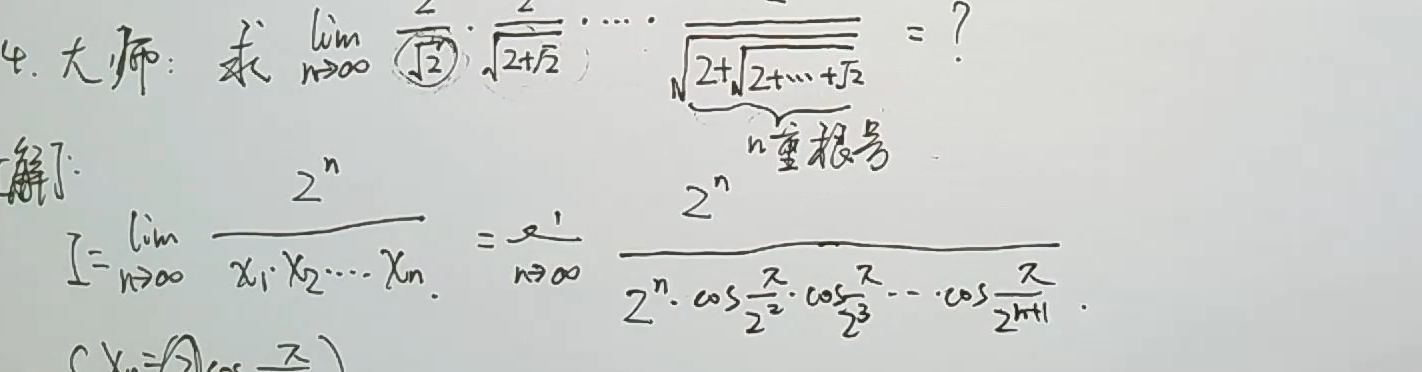 4. 大师: 求 lim n→∞ 2/√2 · 2/√(2+√2) ····· /√(2+√(2+···+√2)) = ?
n重根号
解:
I = lim n→∞ 2^n / (x₁·x₂····xn) = lim n→∞ 2^n / (2^n · cos π/2² · cos π/2³ ··· cos π/2^(n+1)).
(xn = 2cos π